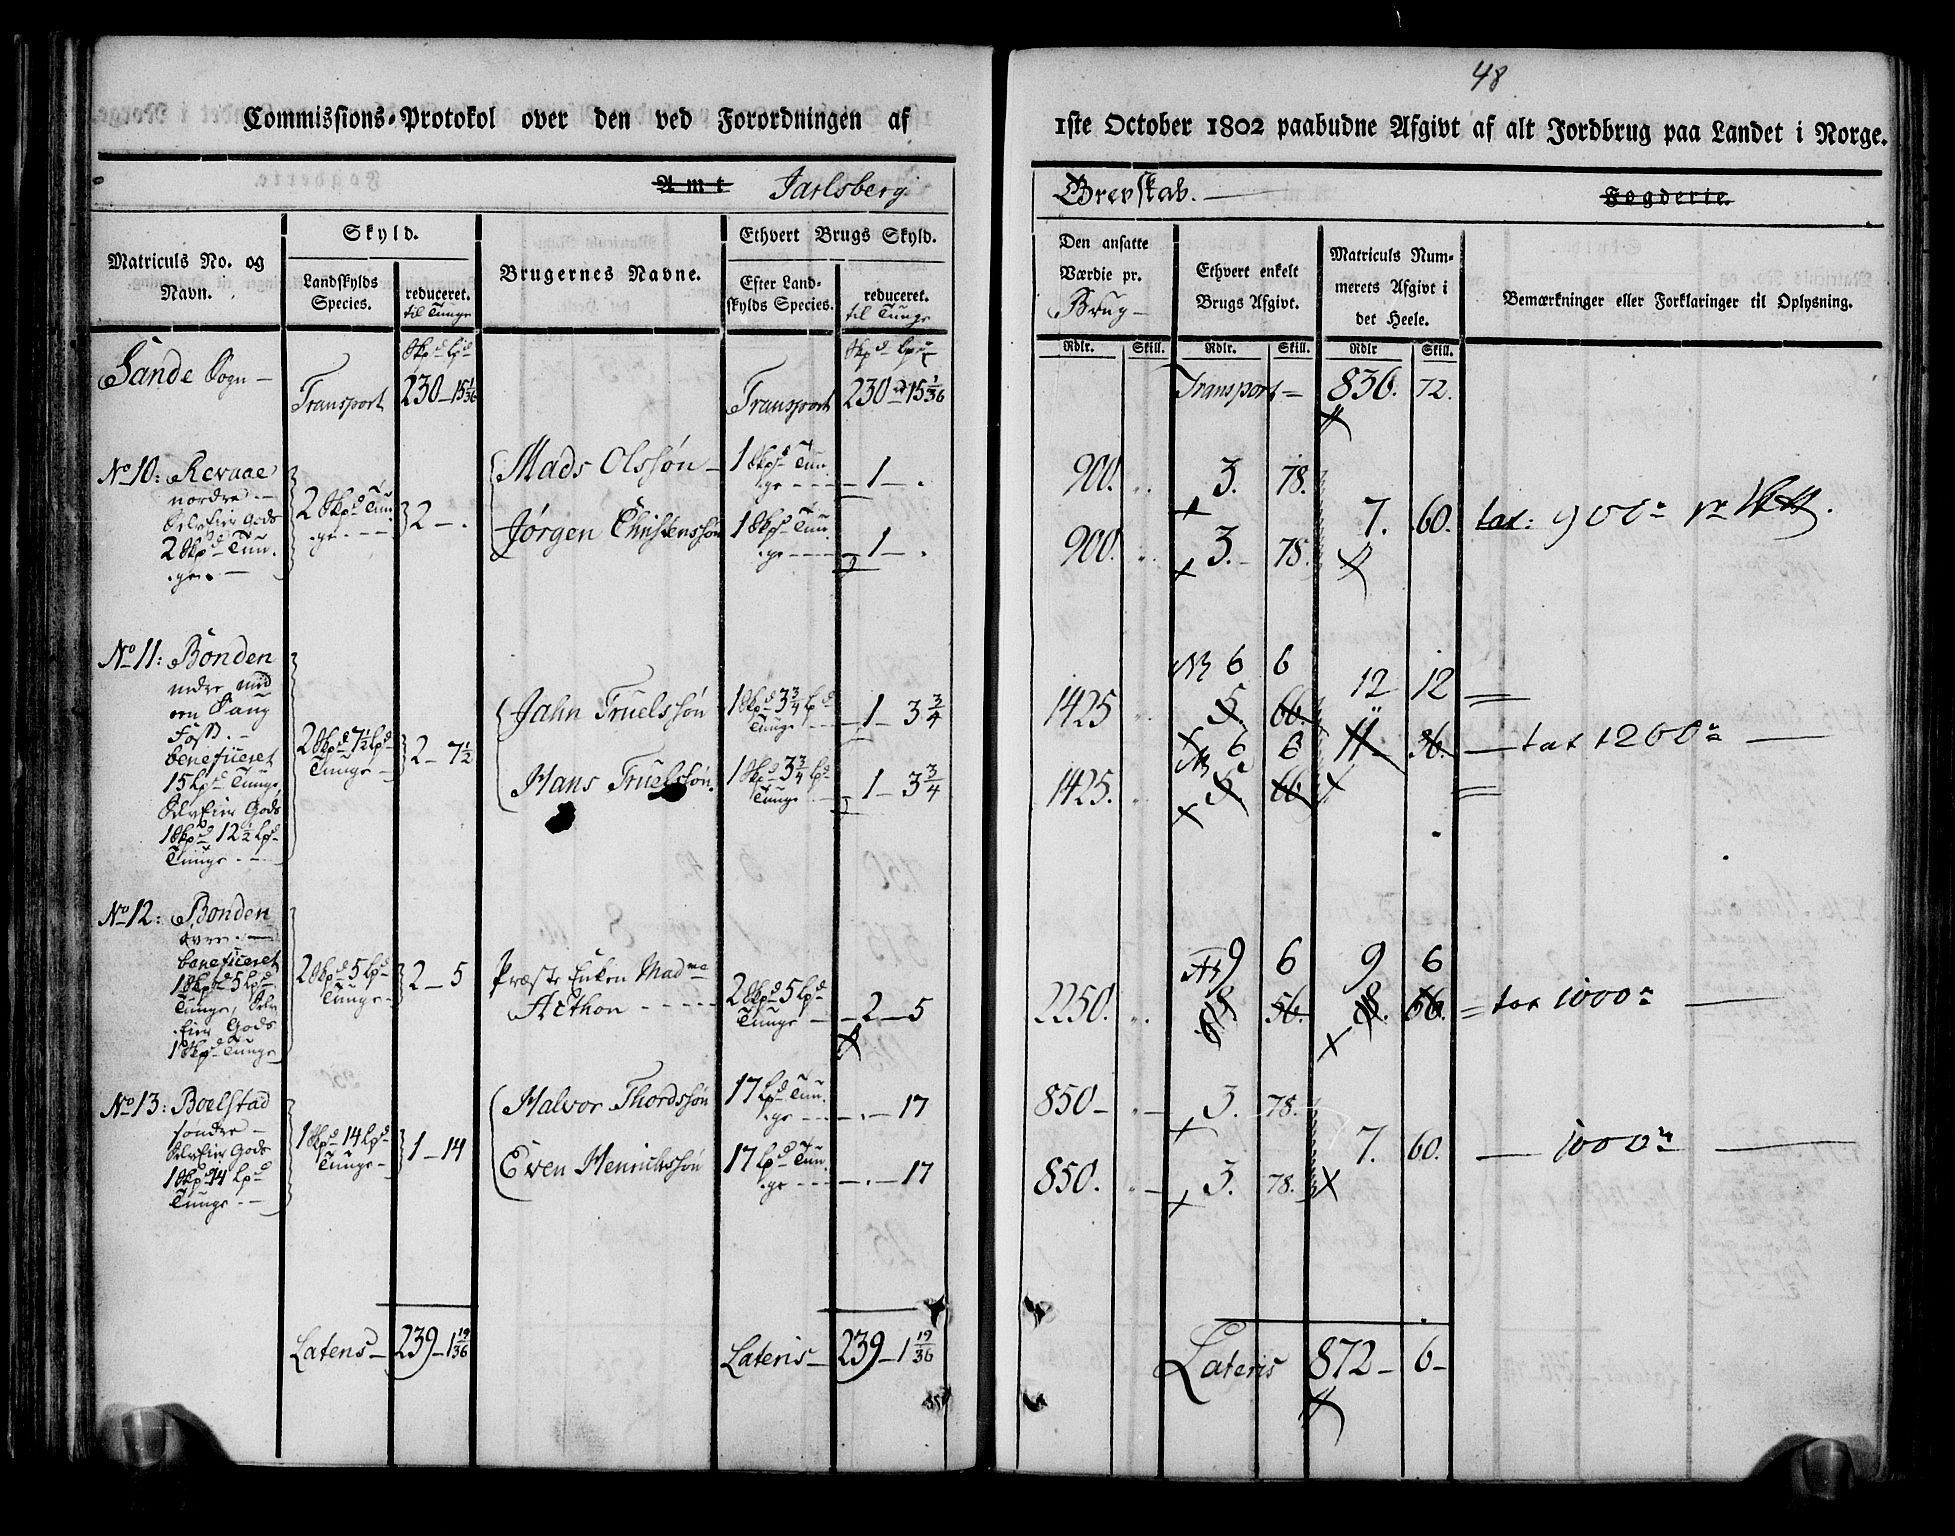 48
Commissions-Protokol over den ved Forordningen af
1ste October 1802 paabudne Afgivt af alt Jordbrug paa Landet i Norge.
Amt Jarlsberg
Grevskab. Fogderie.
Matriculs No. og Navn.
Skyld.
Landskylds Species.
reduceret. til Tunge
Brugernes Navne.
Ethvert Brugs Skyld.
Efter Landskylds Species.
reduceret. til Tunge
Den ansatte Værdie pr. Brug
Ethvert enkelt Brugs Afgivt.
Matriculs Nummerets Afgivt i det Heele.
Bemærkninger eller Forklaringer til Oplysning.
Rdlr. Skill. Rdlr. Skill. Rdlr Skill.
Skpd Lpd Skpd Lpd
Sande Sogn Transport 230 15 1/36 Transport 230 15 1/36 Transport 836. 72.
No 10: Revaae
nordre
SelvEier Gods
2 Skpd Tun
ge.
2 Skpd Tun
ge 2 .
Mads Olssøn 1 Skpd Tun
ge 1 . 900. 3. 78.
Jørgen Christenssøn 1 Skpd Tun
ge 1 . 900. 3. 78.
7. 60. tax: 900
No 11: Bonden
nedre med
een Saug
Foss.
beneficeret
15 Lpd Tunge,
SelvEier Gods
1 Skpd 12 1/2 Lpd
Tunge
2 Skpd 7 1/2 Lpd
Tunge 2 7 1/2
Jahn Truelssøn 1 Skpd 3 3/4 Lpd
Tunge 1 3 3/4 1425 6 6
5. 66.
Hans Truelssøn. 1 Skpd 3 3/4 Lpd
Tunge 1 3 3/4 1425. 6 6
5. 66
12 12
11 36. tax 1200
No 12: Bonden
øvre.
beneficeret
1 Skpd 5 Lpd
Tunge, Selv
Eier Gods
1 Skpd Tunge
2 Skpd 5 Lpd
Tunge 2 5
Præste Enken Madme
2 Skpd 5 Lpd
Tunge 2 5 2250. 9 6 9 6
8 56. 8. 66. tax 1000
No 13: Boelstad
søndre
SelvEier Gods
1 Skpd 14 Lpd
Tunge
1 Skpd 14 Lpd
Tunge 1 14
Halvor Thordssøn 17 Lpd Tun
ge . 17 850 3. 78.
Even Henrichssøn 17 Lpd Tun
ge . 17 850. 3. 78.
7. 60. 1000
Lateris 239 1 19/36 Lateris 239 1 19/36 Lateris 872 6